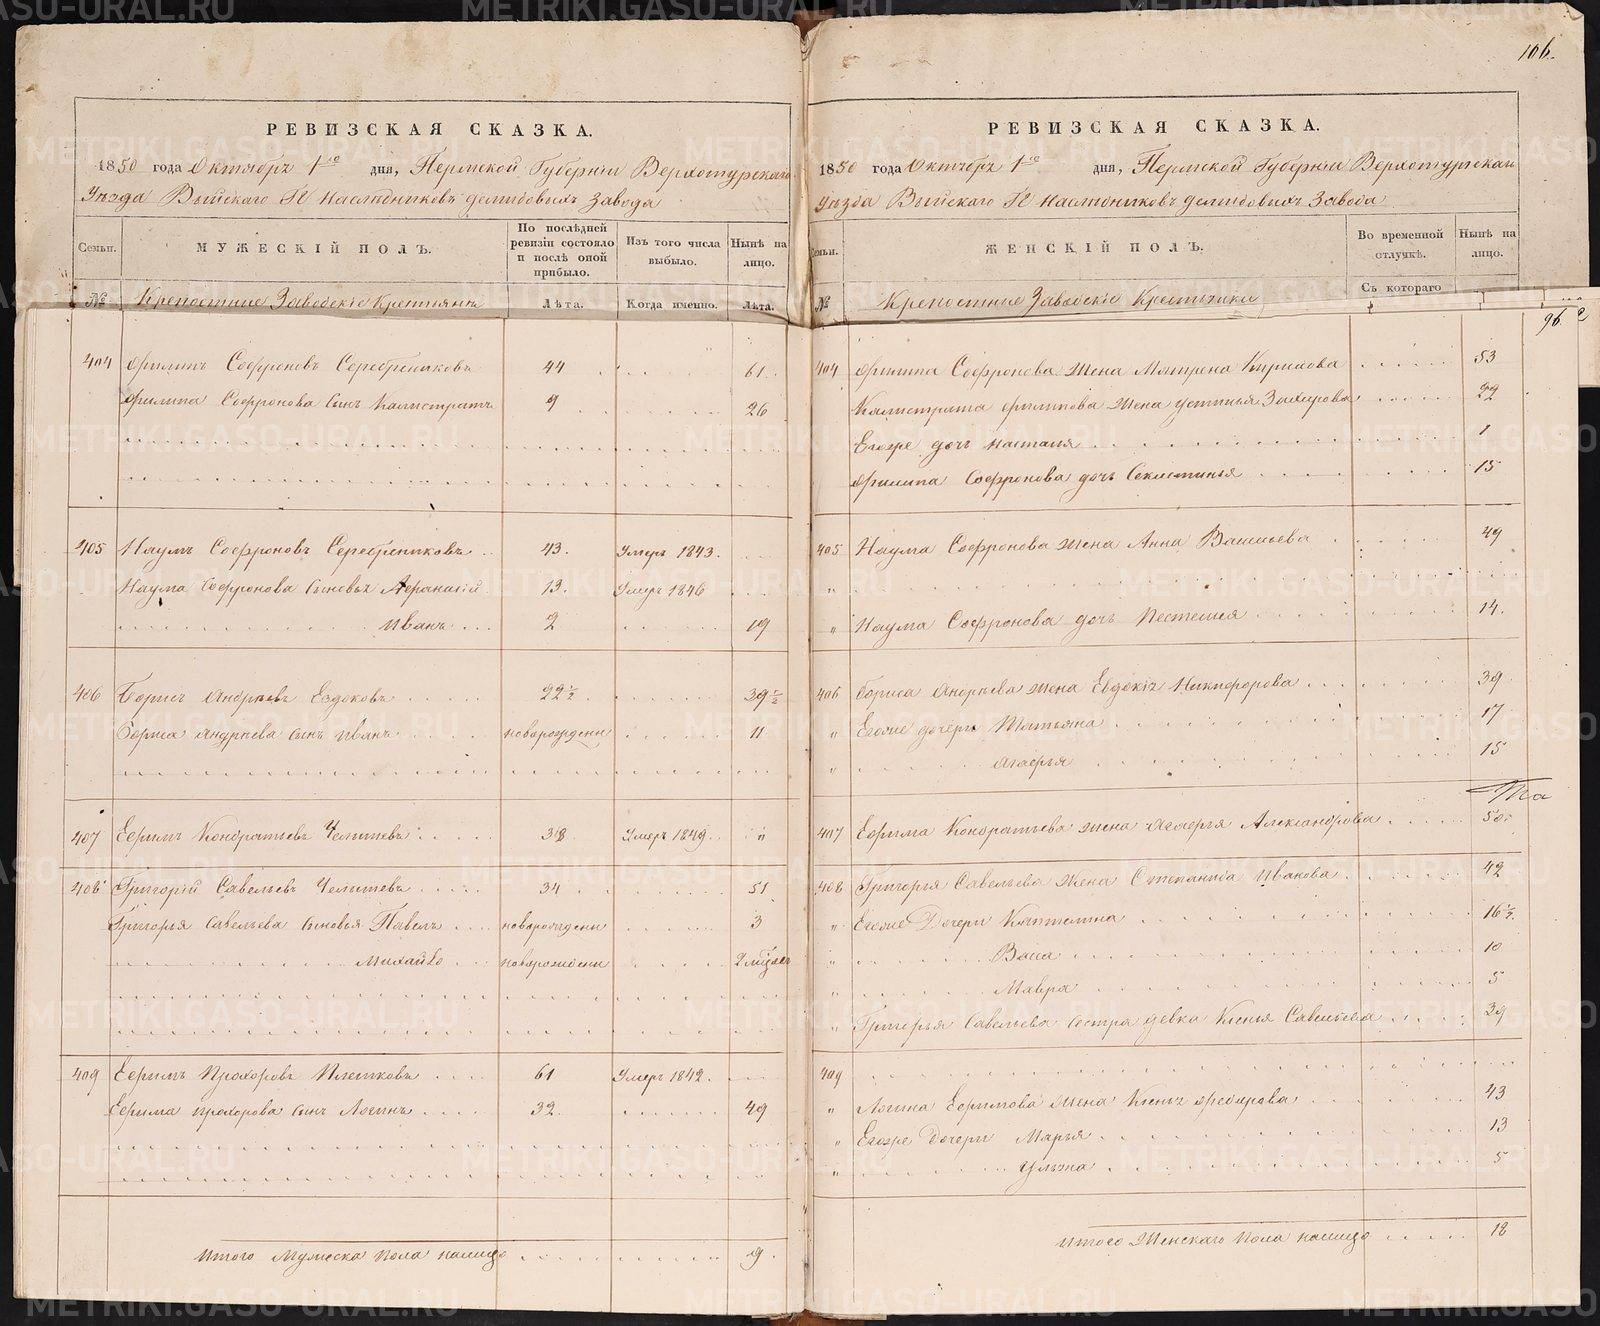 106.
РЕВИЗСКАЯ СКАЗКА.
1850 года Октября 1го дня, Пермской Губерніи Верхотурскаго
Уезда Выйскаго Гг Наследниковъ Демидовыхъ Завода
Семьи.
МУЖЕСКІЙ ПОЛЪ.
По послѣдней ревизіи состояло и послѣ оной прибыло.
Изъ того числа выбыло.
Нынѣ на лицо.
№ Крепостные Заводскіе Крестьяне Лѣта. Когда именно. Лѣта.
404 Филипъ Софроновъ Серебрениковъ 44 61
Филипа Софронова сынъ Калистратъ 9 26
405 Наумъ Софроновъ Серебрениковъ 43. Умеръ 1843.
Наума Софронова сыновья Афанасій 13. Умеръ 1846
Иванъ 2 19
406 Борисъ Андреевъ Евдоковъ 22½ 39½
Бориса Андреева сынъ Иванъ новорожденн 11
407 Ефимъ Кондратьевъ Челышевъ 32 Умеръ 1849. "
408 Григорій Савельевъ Челышевъ 34 51
Григорья Савельева сыновья Павелъ новорожденн 3
Михайло новорожденн 2 месяц
409 Ефимъ Прохоровъ Плешковъ 61 Умеръ 1842.
Ефима Прохорова сынъ Логинъ 32 49
Итого Мужеска пола налицо 9.
РЕВИЗСКАЯ СКАЗКА.
1850 года Октября 1го дня, Пермской Губерніи Верхотурскаго
Уезда Выйскаго Гг Наследниковъ Демидовыхъ Завода
Семьи.
ЖЕНСКІЙ ПОЛЪ.
Во временной отлучкѣ.
Нынѣ на лицо.
№ Крепостные Заводскіе Крестьянки Съ котораго
96.
404 Филипа Софронова жена Матрена Кирилова 53
Калистрата Филипова жена Устинья Захарова 22
Егоже дочь Насталья 1
Филипа Софронова дочь Секлетинья 15
405 Наума Софронова жена Анна Васильева 49
"
" Наума Софронова дочь Пестелея 14.
406 Бориса Андреева жена Евдокія Никифорова 39
" Егоже дочери Татьяна 17
" Агафья 15
407 Ефима Кондратьева жена Агафья Александрова 50
408 Григорья Савельева жена Степанида Иванова 42
" Егоже Дочери Каптелина 16½
" Васса 10
" Мавра 5
" Григорья Савельева сестра девка Ксенья Савельева 39
409
" Логина Ефимова жена Ксенья Федорова 43
" Егоже Дочери Марья 13
" Ульяна 5
Итого Женскаго пола налицо 18